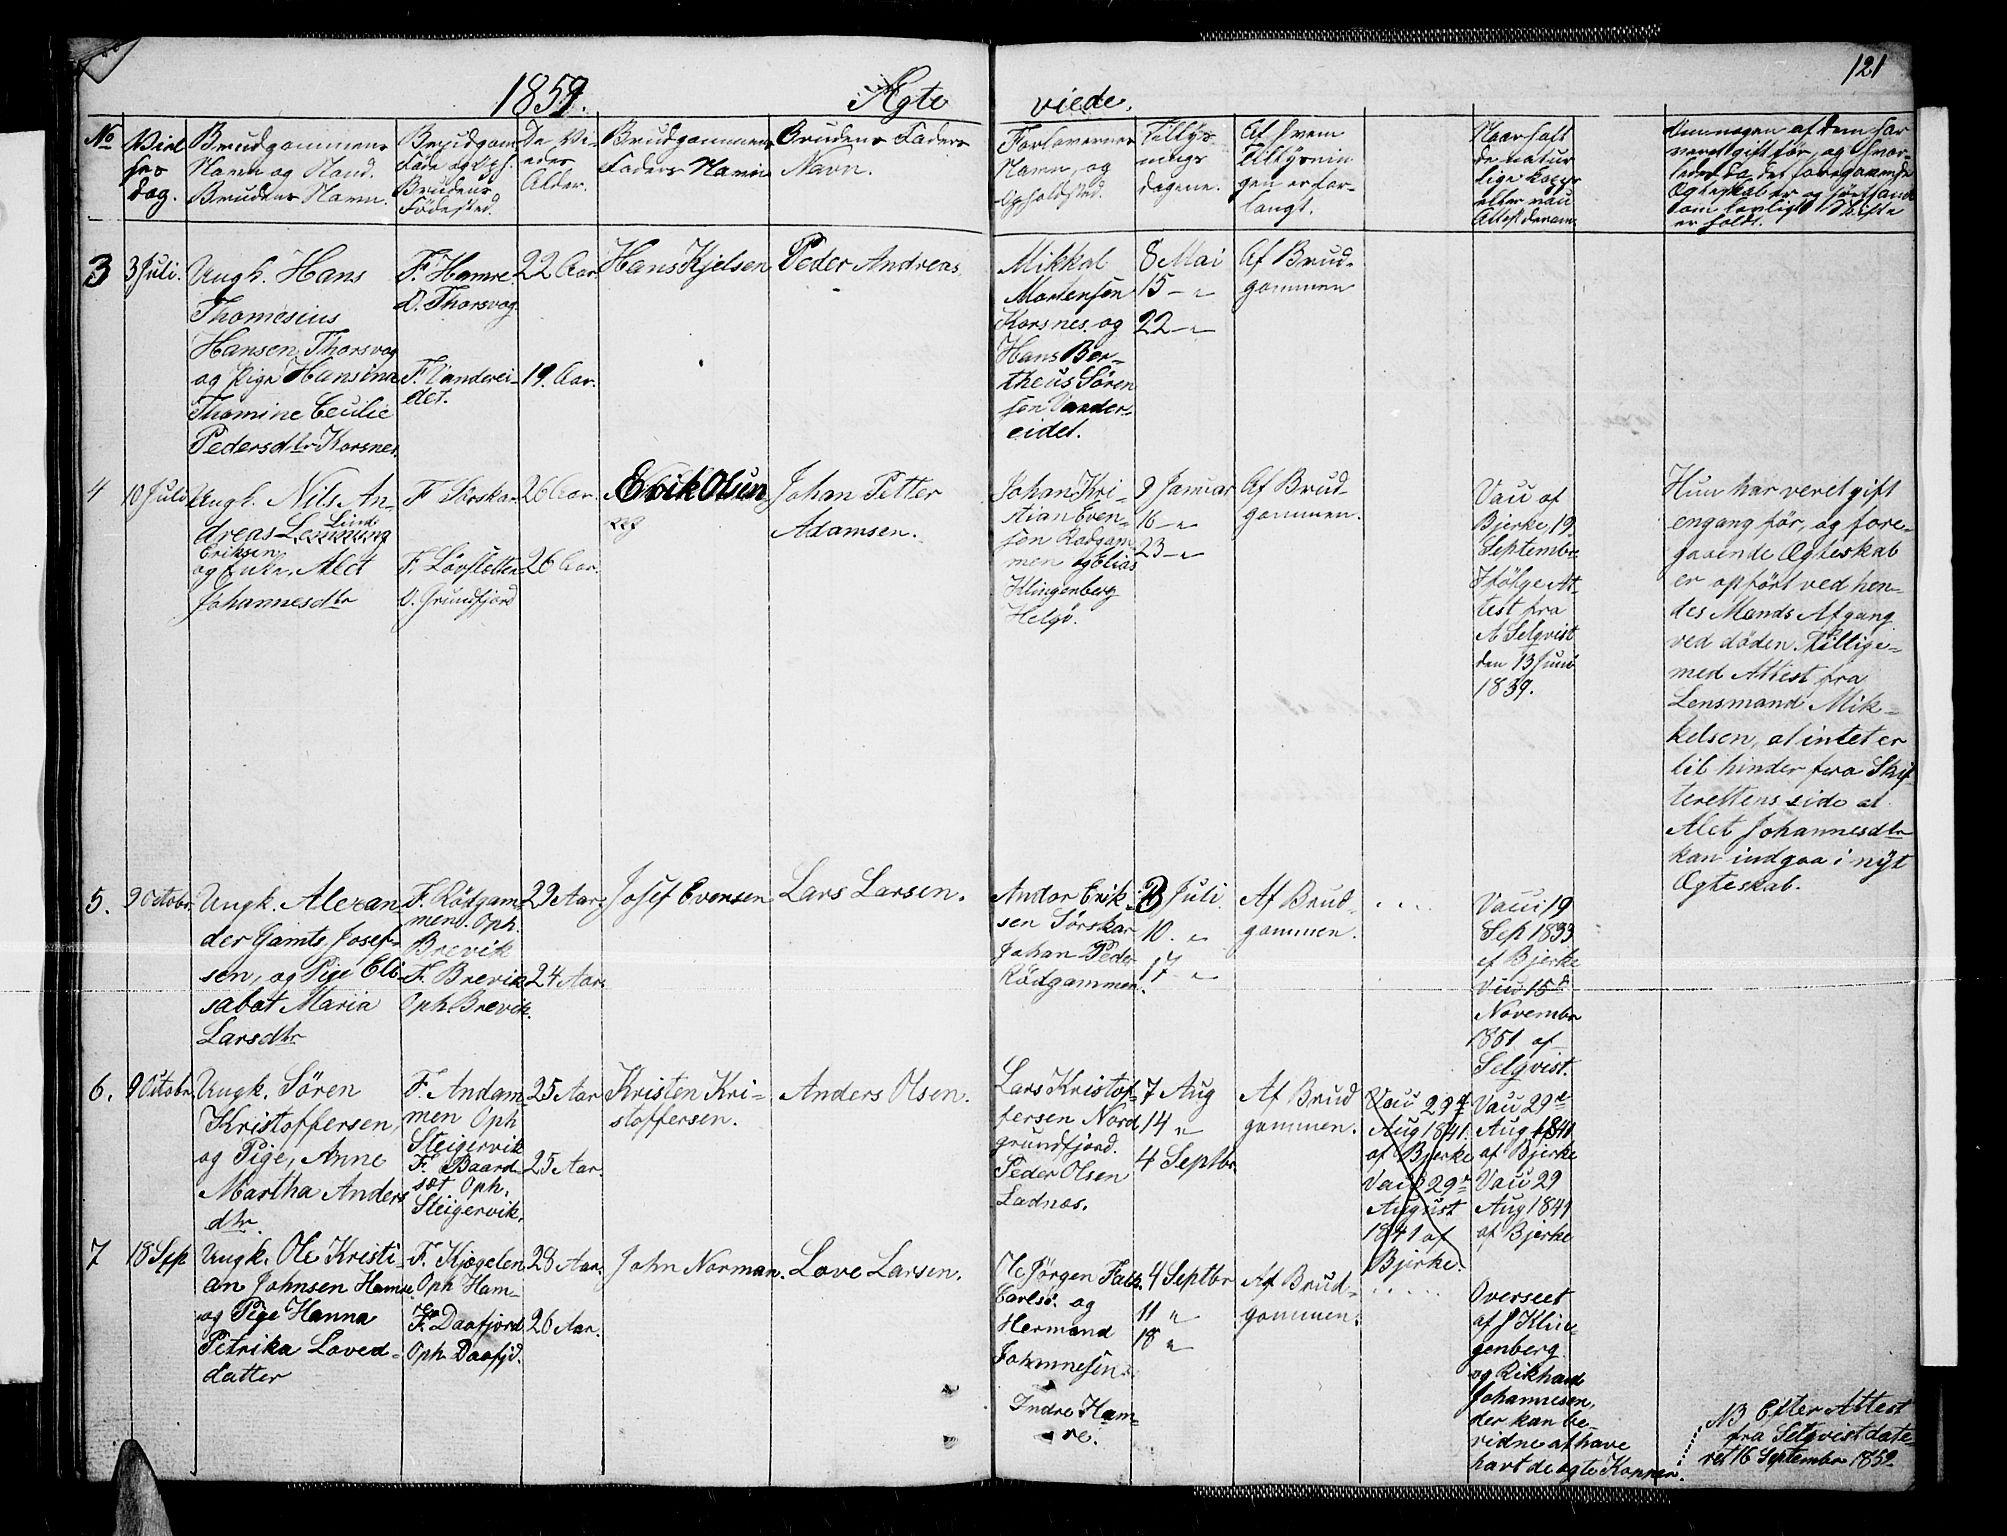 121
1859.
Ægte
viede.
No
Viel
ses
dag.
Brudgommens
Navn og Stand.
Brudens Navn.
Brudgom
Føde og Oph.
Brudens
Fødested.
De Vi-
edes
Alder.
Brudgommens
Faders Navn
Brudens Faders
Navn.
Forlovernes
Navn, og
Opholdsted.
Tillys-
nings
dagene.
Af hvem
Tillysnin
gen er for-
langt.
Naar halt
de natur
lige Kopper
eller vau
Attest derom.
Om nogen af dem har
veret gift før, og hvor-
ledes da det foregaaende
Ægteskab er ophørt
om lovligt Skifte
er holdt.
3
3 Juli.
Ungk. Hans
Thomesius
Hansen Thorsvog
og Pige Hansine
Thomine Cecilie
Pedersdtr Korsnes.
F. Hamre
O. Thorsvog
F. Vanderei-
det.
22 Aar.
19. Aar.
Hans Kjelsen
Peder Andreas
Mikkal
Mortensen
Korsnes. og
Hans Ber-
theus Søren
sen Vander-
eidet.
8 Mai
15 - "
22 - "
Af Brud-
gommen
4
10 Juli
Ungk. Nils An-
dreas Lemming
Lind
Eriksen
og Enke, Alet
Johannesdtr
F Sørskar
F. Løvstetten
O. Grundfjord
26 Aar.
26 Aar.
Erik Olsen
Johan Petter
Adamsen.
Johan Kri-
stian Even-
sen Rødgam
men og Elias
Klingenberg
Helgø.
9 Januar
16 - "
23 - "
Af Brud-
gommen.
Vau af
Bjerke 19
September
Ifølge At-
test fra
A Selqvist
den 13 Juni
1839.
Hun har veret gift
engang før, og fore-
gaaende Ægteskab
er opført ved hen-
des Mands Afgang
ved døden. Tillige-
med Attest fra
Lensmand Mik-
kelsen, at intet er
til hinder fra Skif-
terettens side at
Alet Johannesdtr
kan indgaa i nyt
Ægteskab.
5.
9 Octobr
Ungk. Alexan
der Gamts Josef-
sen, og Pige Eli-
sabat Maria
Larsdtr
F. Rødgam-
men. Oph.
Brevik
F. Brevik
Oph. Brevik.
29 Aar
24 Aar.
Josef Evensen
Lars Larsen.
Andor Erik-
sen Sørskar
Johan Peder
Rødgammen.
3 Juli
10. "
17 - "
Af Brud-
gommen.
. . . .
Vau 19
Sep 1833
af Bjerke
Vau 15d
Novembr
1851 af
Selqvist.
6.
9 Octobr.
Ungk. Søren
Kristoffersen,
og Pige, Anne
Martha Anders
dtr.
F. Andam-
men Oph
Steigervik
F. Baard-
sæt Oph.
Steigervik.
25 Aar
25 Aar.
Kristen Kri-
stoffersen.
Anders Olsen.
Lars Kristof-
fersen Nord
grundfjord.
Peder Olsen
Ladnes.
7 Aug
14 "
4 Septbr.
Af Brud
gommen.
Vau 29de
Aug 1841.
af Bjerke
Vau 29de
August
1841 af
Bjerke.
Vau 29de
Aug 1841
af Bjerke
Vau 29
Aug 1841
af Bjerke
7
18 Sep
Ungk. Ole Kristi-
an Johnsen Hamre.
og Pige Hanna
Petrika Loved-
datter
F. Kjøgelen
Oph Ham-
re
F. Daafjord
Oph Daafjd.
28 Aar.
26 Aar.
John Norman.
Love Larsen.
Ole Jørgen Fals.
Carlsø. og
Hermand
Johannesen.
Indre Ham-
re.
4 Septbr
11 "
18 "
Af Brud-
gommen.
. . . . .
Overseet
af J Klin-
genberg
og Rikhard
Johannesen,
der kan be-
vidne at have
havt de ægte Kopper.
NB Efter Attest
fra Selqvist date-
ret 16 September 1859